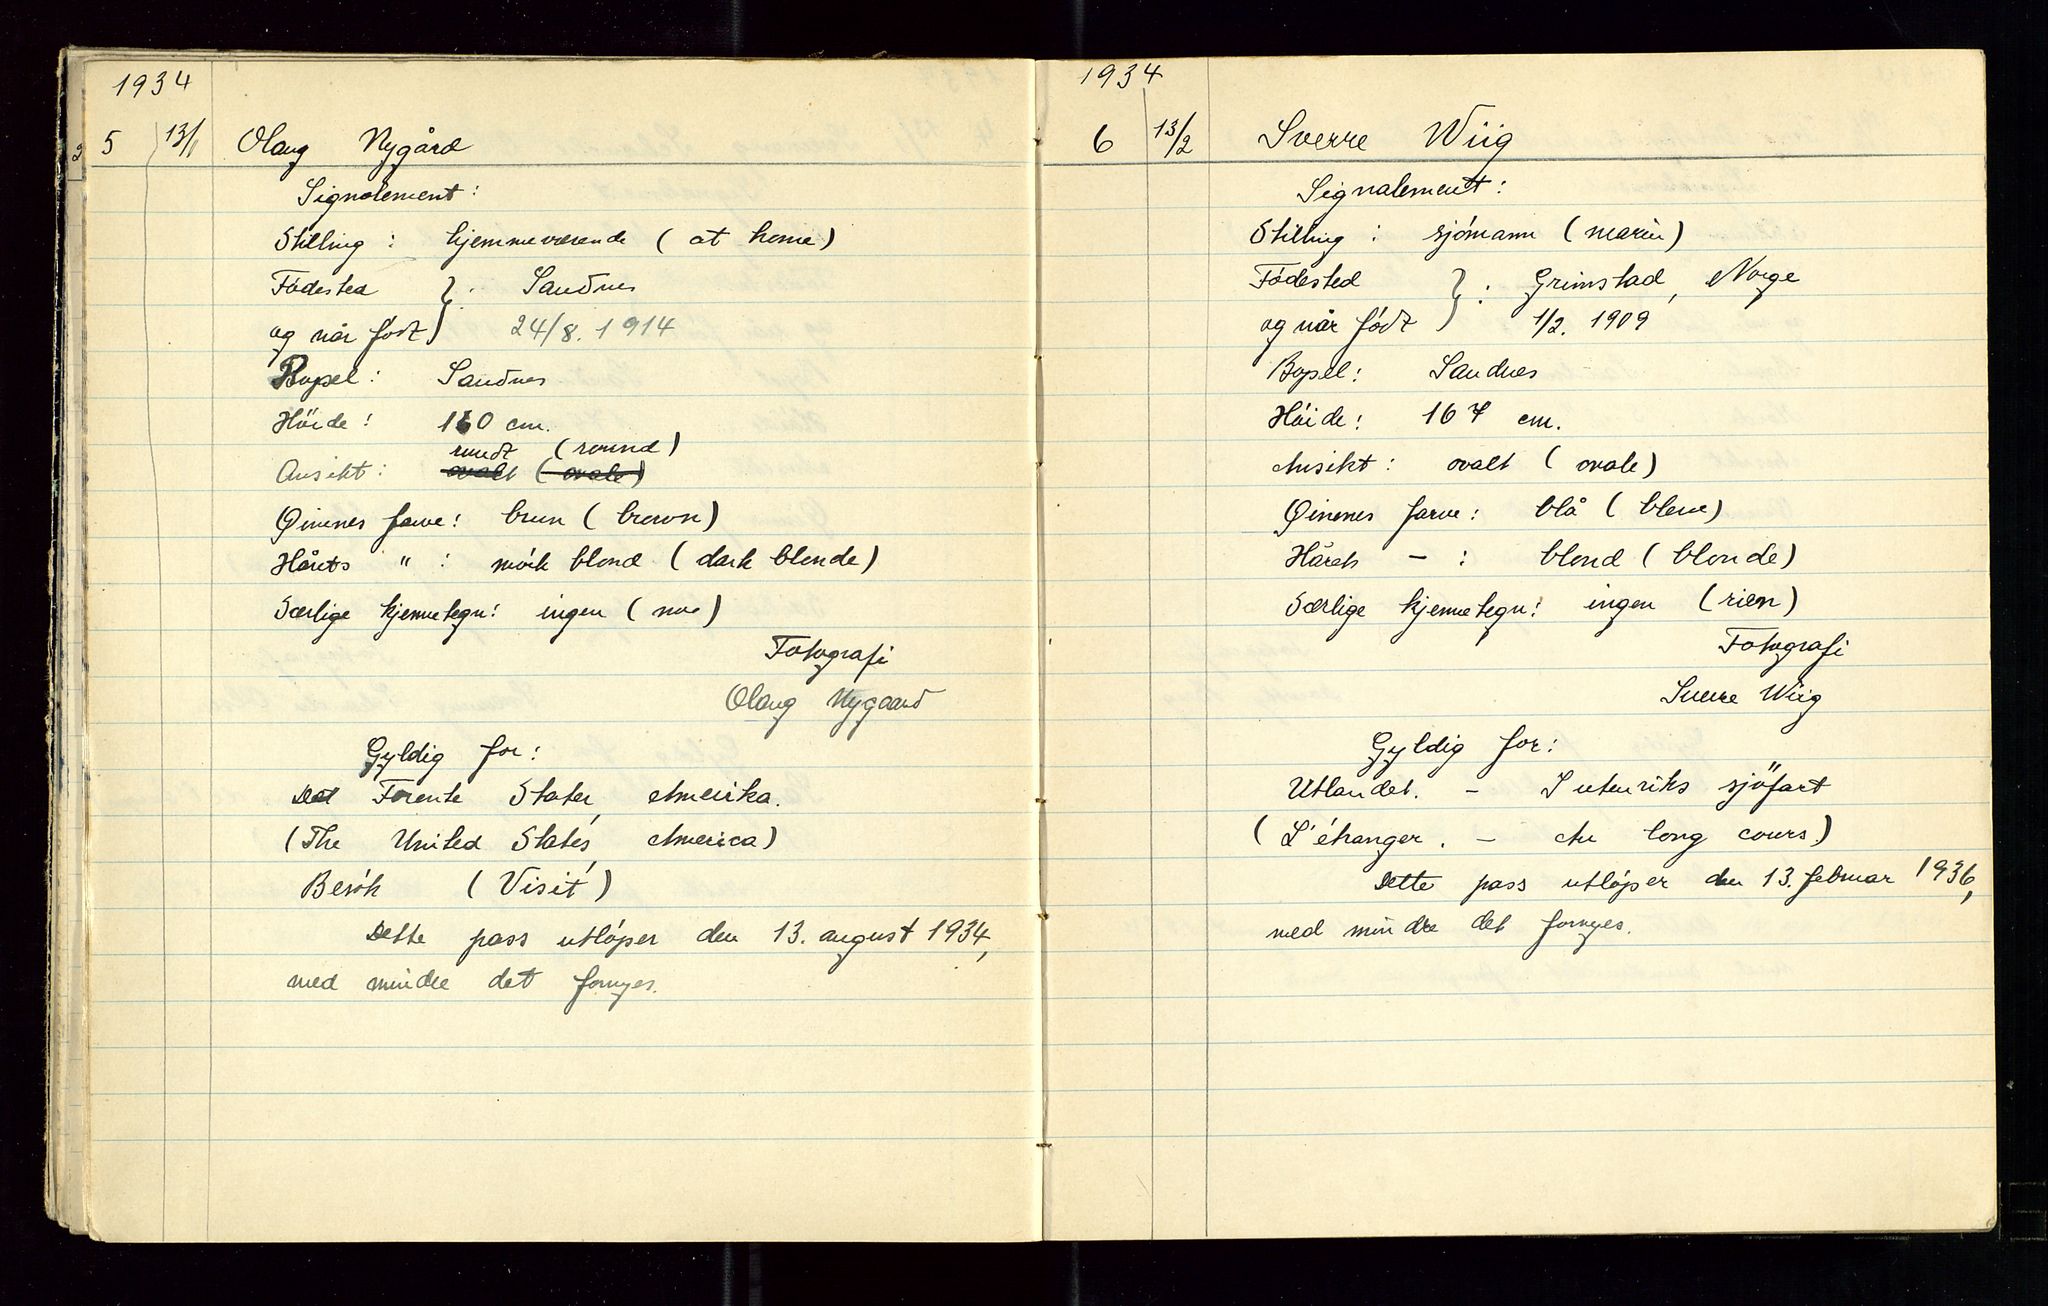 1934
5 13/1 Olaug Nygård
Signalement:
Stilling: hjemmeværende (at home)
Fødested } : Sandnes
og når født } 24/8. 1914
Bopel: Sandnes
Höide: 160 cm.
rundt (round)
Ansikt: ovalt (ovale)
Øinenes farve: brun (brown)
Hårets " : mörk blond (dark blonde)
Særlige kjennetegn: ingen (no)
Fotografi
Olaug Nygaard
Gyldig for:
Forente Stater, Amerika.
(The United States, America)
Besök (Visit)
Dette pass utlöper den 13. august 1934,
med mindre det fornyes.
1934
6 13/2 Sverre Wiig
Signalement:
Stilling: sjömann (marin)
Födested } : Grimstad, Norge
og når født } 1/2. 1909
Bopel: Sandnes
Höide: 167 cm.
Ansikt: ovalt (ovale)
Øinenes farve: blå (bleue)
Hårets - : blond (blonde)
Særlige kjennetegn: ingen (rien)
Fotografi
Sverre Wiig
Gyldig for:
Utlandet. - I utenriks sjöfart
(L'étranger. - Au long cours.)
Dette pass utlöper den 13. februar 1936,
med mindre det fornyes.